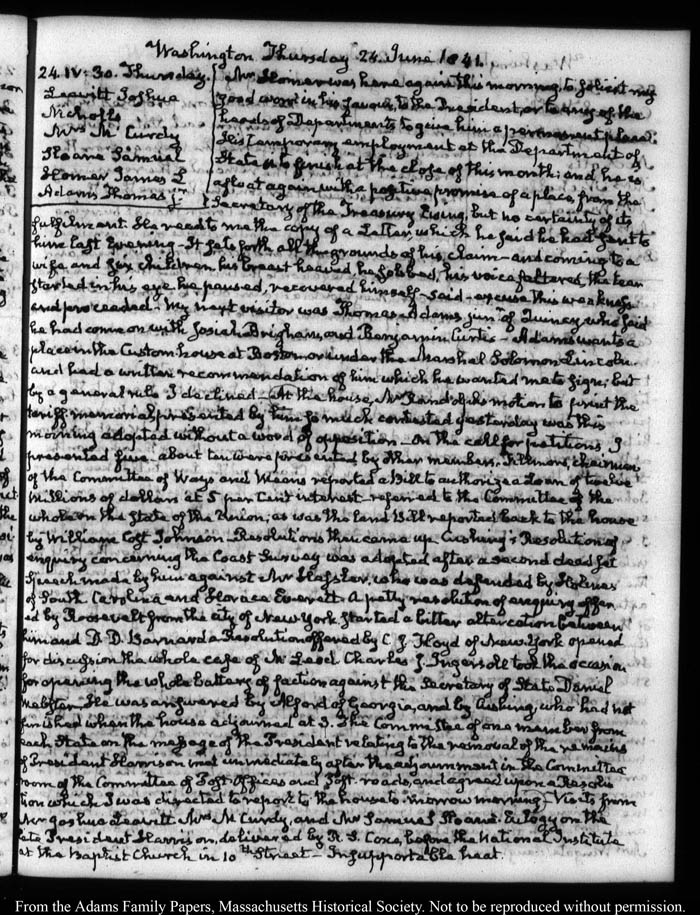 Washington Thursday 24. June 1841.
24. IV: 30. Thursday.
Leavitt Joshua
Nicholls
Mrs McCurdy
Sloane Samuel
Homer James L
Adams Thomas jr
Mr Homer was here again this morning, to solicit my
good word in his favour, to the President, or to any of the
heads of Departments to give him a permanent place.
His temporary employment at the Department of
State is to finish at the close of this month; and he is
afloat again, with a positive promise of a place, from the
Secretary of the Treasury Ewing, but no certainty of its
fulfilment. He read to me the copy of a Letter, which he said he had sent to
him last Evening — It sets forth all the grounds of his claim — and coming to a
wife and six children, his breast heaved, he sobbed, his voice faltered, the tear
started in his eye he paused, recovered himself — said — excuse this weakness
and proceeded — My next visitor was Thomas Adams junr. of Quincy, who said
he had come on with Josiah Brigham, and Benjamin Curtis — Adams wants a
place in the Custom-house at Boston or under the Marshal Solomon Lincoln.
and had a written recommendation of him which he wanted me to sign; but
by a general rule I declined — At the house, Mr Randolph's motion to print the
tariff memorial presented by him so much contested yesterday was this
morning adopted without a word of opposition — On the call for petitions, I
presented five. about ten were presented by other members. Fillmore, chairman
of the Committee of Ways and Means reported a Bill to authorize a Loan of twelve
Millions of dollars at 5 per Cent interest — referred to the Committee of the
whole on the State of the Union; as was the Land Bill reported back to the house
by William Cost Johnson — Resolutions then came up. Cushing's Resolution of
enquiry concerning the Coast Survey was adopted after a second dead set
Speech made by him against Mr Hassler, who was defended by Holmes
of South Carolina and Horace Everett. A petty resolution of enquiry offer
ed by Roosevelt from the city of New York started a bitter altercation between
him and D. D. Barnard a Resolution offered by C. J. Floyd of New York opened
for discussion the whole case of McLeod. Charles J. Ingersoll took the occasion
for opening the whole battery of faction against the Secretary of State Daniel
Webster. He was answered by Alford of Georgia, and by Cushing, who had not
finished when the house adjourned at 3. The Committee of one member from
each State on the message of the President relating to the removal of the remains
of President Harrison met immediately after the adjournment in the Committee
room of the Committee of Post-Offices and Post-roads, and agreed upon a Resolu
tion which I was directed to report to the house to-morrow morning. Visits from
Mr Joshua Leavitt Mrs McCurdy, and Mr Samuel Sloane. Eulogy on the
late President Harrison, delivered by R. S. Coxe, before the National Institute
at the Baptist Church in 10th Street — Insupportable heat.
From the Adams Family Papers, Massachusetts Historical Society. Not to be reproduced without permission.